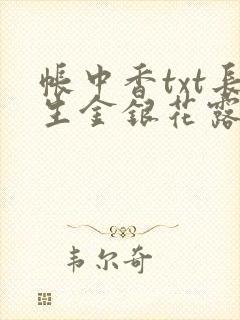 帐中香txt長
生金銀花露
韦尔奇